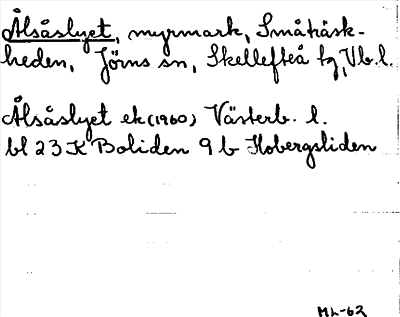 Ålsåslyet, myrmark, Småträsk-
heden, Jörns sn, Skellefteå tg, Vb. l.
Ålsåslyet ek (1960) Västerb. l.
bl 23 K Boliden 9 b Hobergsliden
ML-62